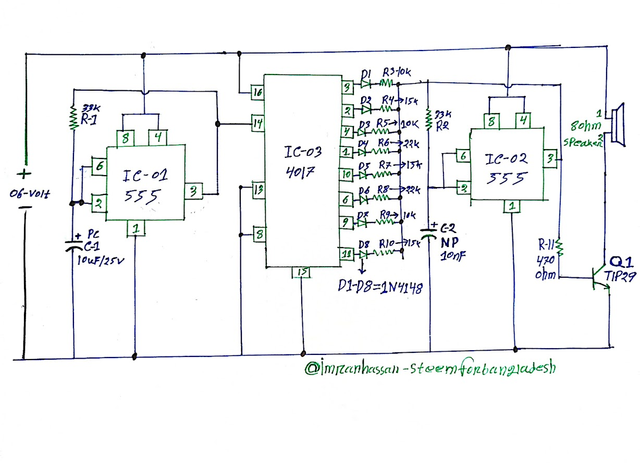 06-volt
+
33k
R-1
8
4
6
IC-01
555
2
3
1
PC
+
C-1
10uF/25V
16
14
13
8
IC-03
4017
15
3
2
4
1
10
6
9
11
D1
R3-10k
D2
R4→15k
D3
R5→10k
D4
R6→22k
D5
R7→15k
D6
R8→22k
D7
R9→10k
D8
R10→15k
D1-D8=1N4148
33k
R2
+
C-2
NP
10nF
8
4
6
IC-02
555
2
3
1
R-11
470
ohm
1
8ohm
speaker
2
Q1
TIP29
@imranhassan-steemforbangladesh